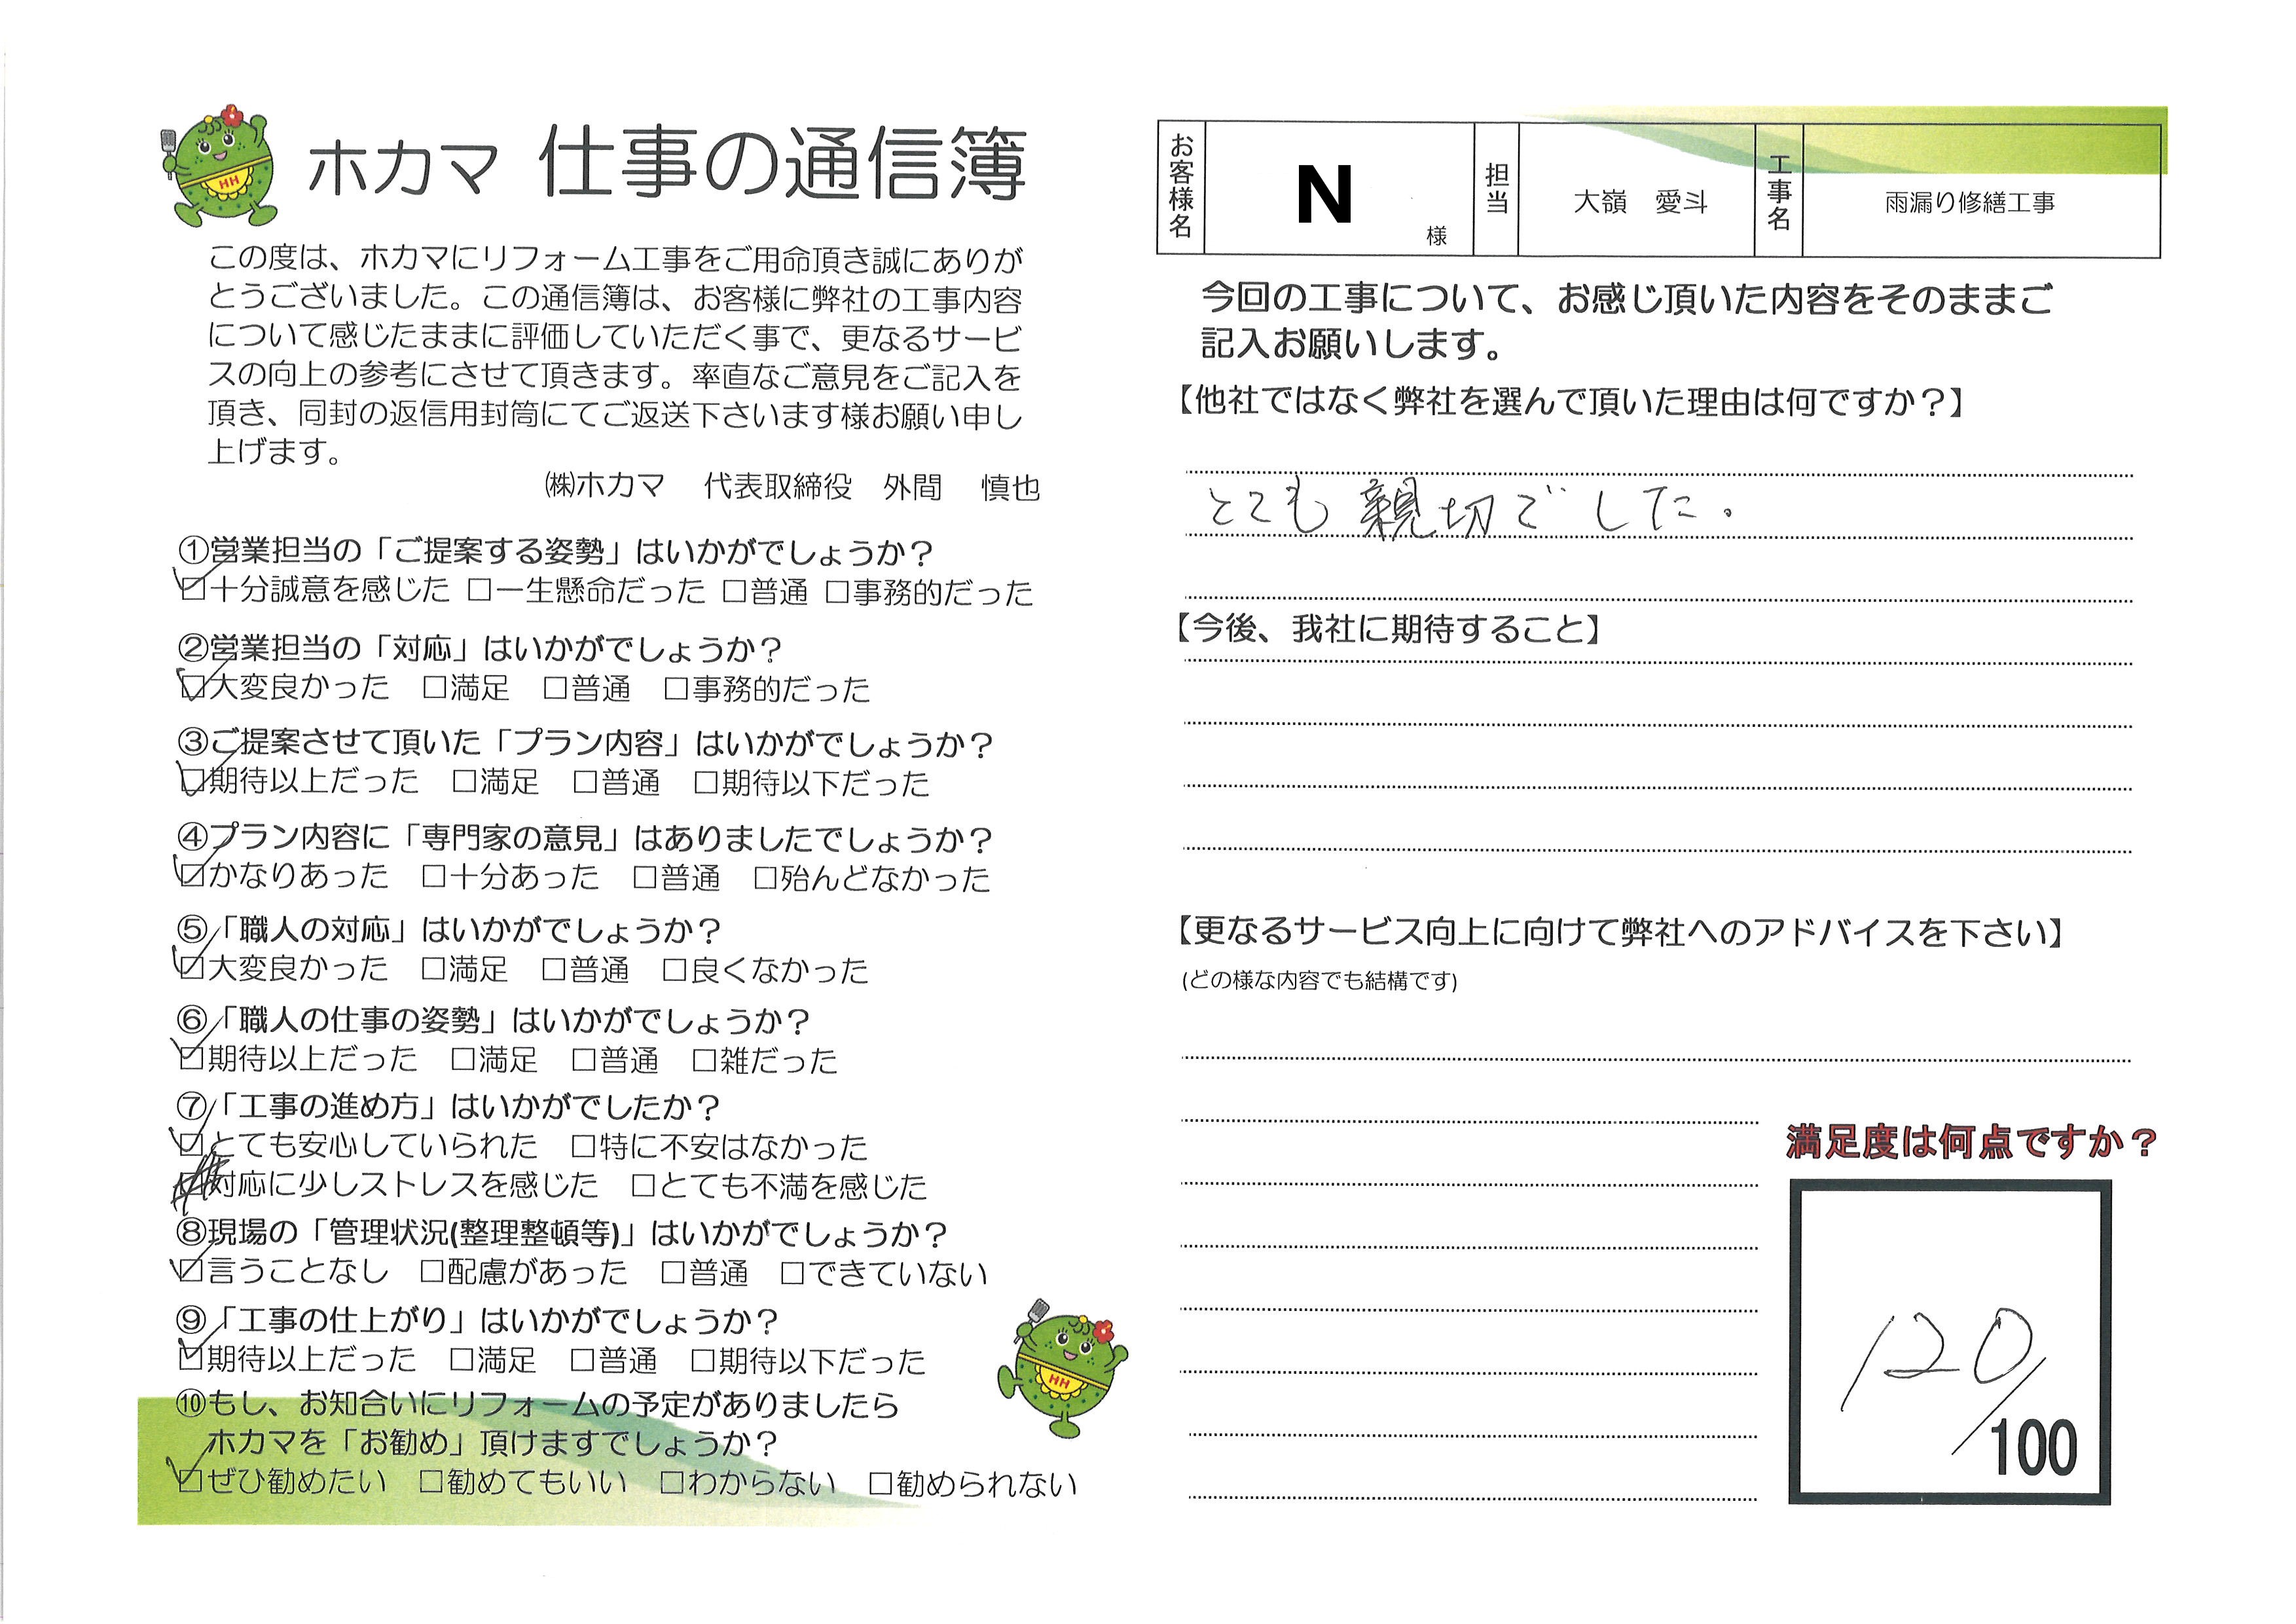 ホカマ 仕事の通信簿
この度は、ホカマにリフォーム工事をご用命頂き誠にありが
とうございました。この通信簿は、お客様に弊社の工事内容
について感じたままに評価していただく事で、更なるサービ
スの向上の参考にさせて頂きます。率直なご意見をご記入を
頂き、同封の返信用封筒にてご返送下さいます様お願い申し
上げます。
㈱ホカマ 代表取締役 外間 慎也
①営業担当の「ご提案する姿勢」はいかがでしょうか？
☑十分誠意を感じた □一生懸命だった □普通 □事務的だった
②営業担当の「対応」はいかがでしょうか？
☑大変良かった □満足 □普通 □事務的だった
③ご提案させて頂いた「プラン内容」はいかがでしょうか？
☑期待以上だった □満足 □普通 □期待以下だった
④プラン内容に「専門家の意見」はありましたでしょうか？
☑かなりあった □十分あった □普通 □殆んどなかった
⑤「職人の対応」はいかがでしょうか？
☑大変良かった □満足 □普通 □良くなかった
⑥「職人の仕事の姿勢」はいかがでしょうか？
☑期待以上だった □満足 □普通 □雑だった
⑦「工事の進め方」はいかがでしたか？
☑とても安心していられた □特に不安はなかった
□対応に少しストレスを感じた □とても不満を感じた
⑧現場の「管理状況(整理整頓等)」はいかがでしょうか？
☑言うことなし □配慮があった □普通 □できていない
⑨「工事の仕上がり」はいかがでしょうか？
☑期待以上だった □満足 □普通 □期待以下だった
⑩もし、お知合いにリフォームの予定がありましたら
ホカマを「お勧め」頂けますでしょうか？
☑ぜひ勧めたい □勧めてもいい □わからない □勧められない
HH
HH
お客様名 N 様 担当 大嶺 愛斗 工事名 雨漏り修繕工事
今回の工事について、お感じ頂いた内容をそのままご
記入お願いします。
【他社ではなく弊社を選んで頂いた理由は何ですか？】
とても親切でした.
【今後、我社に期待すること】
【更なるサービス向上に向けて弊社へのアドバイスを下さい】
(どの様な内容でも結構です)
満足度は何点ですか？
120/100